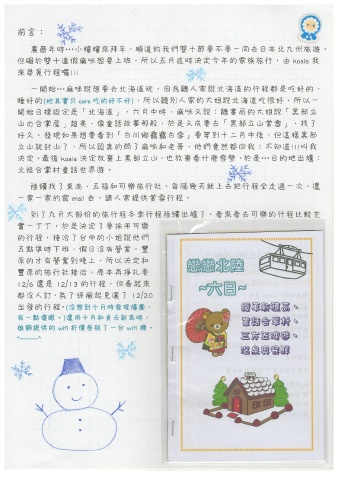 前言：
農曆年時…小嬸嬸來拜年，順道約我們雙十節要不要一同去日本北九州旅遊，
但礙於雙十連假麻咪想要上班，所以五月底時決定今年的家族旅行，由 koala 我
來尋覓行程囉!!!
一開始…麻咪說想去北海道玩，因為聽人家說北海道的行程都是好吃的、
睡好的(她其實只care吃的好不好)，所以聽別人家的大姐說北海道吃很好，所以一
開始目標設定是「北海道」，六月中時，麻咪又說：聽書局的大姐說「黑部立
山の合掌屋」超美，像童話故事那般，於是又改要去「黑部立山賞雪」，找了
好久，發現如果想要看到「白川鄉靄靄白雪」要等到十二月中後，但這樣黑部
立山就封山了，所以認真的問了麻咪和老哥，他們竟然都回我：不知道!!!叫我
決定，最後 koala 決定放棄上黑部立山，也放棄看什麼雪壁，於是…目的地出爐：
北陸合掌村童話世界遊。
陸續找了東南、五福和可樂旅行社，每隔幾天就上去把行程全走過一次，還
一家一家的寫 mail 去，請人家提供賞雪行程。
到了九月大部份的旅行程冬季行程陸續出爐了，看來看去可樂的行程比較充
實一丁丁，於是決定了要採用可樂
的行程，接洽了台中的小姐說他們
五點準時下班，假日沒有營業，豐
原的才有營業到晚上，所以決定和
豐原的旅行社接洽。原本再掙扎要
12/6 還是 12/13 的行程，但看起來
都沒人訂，為了保險起見選了 12/20
出發的行程。(沒想到十月時發現撞團，
有一點傻眼。)還用十月和貞去新馬時，
雄獅提供的 wifi 折價卷租了一台 wifi 機。
戀戀北陸
~六日~
纜車新穗高、
童話合掌村、
三方五湖遊、
溫泉與雪景